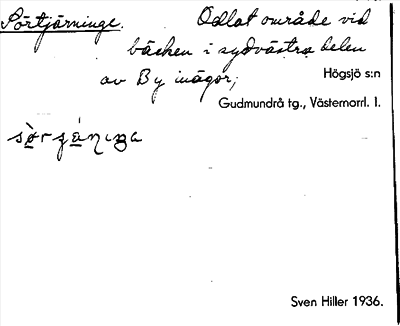 Sörtjärninge. Odlat område vid
bäcken i sydvästra delen
av By inägor,
Högsjö s:n
Gudmundrå tg., Västernorrl. l.
Sven Hiller 1936.